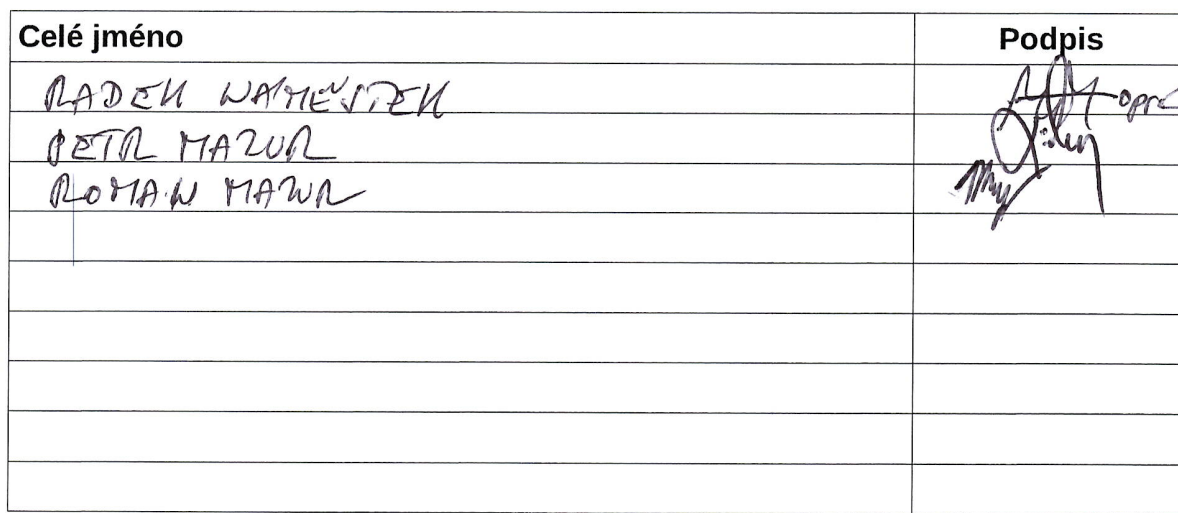 Celé jméno Podpis
RADEK NÁMĚSTEK
PETR MAZUR
ROMAN MAZUR